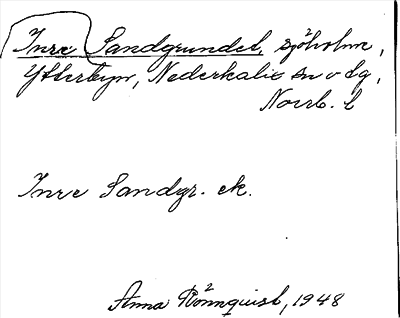 Inre Sandgrundet, sjöholme,
Ytterbyn, Nederkalix sn o sg,
Norrb. l
Inre Sandgr. ek.
Anna Rönnquist, 1948